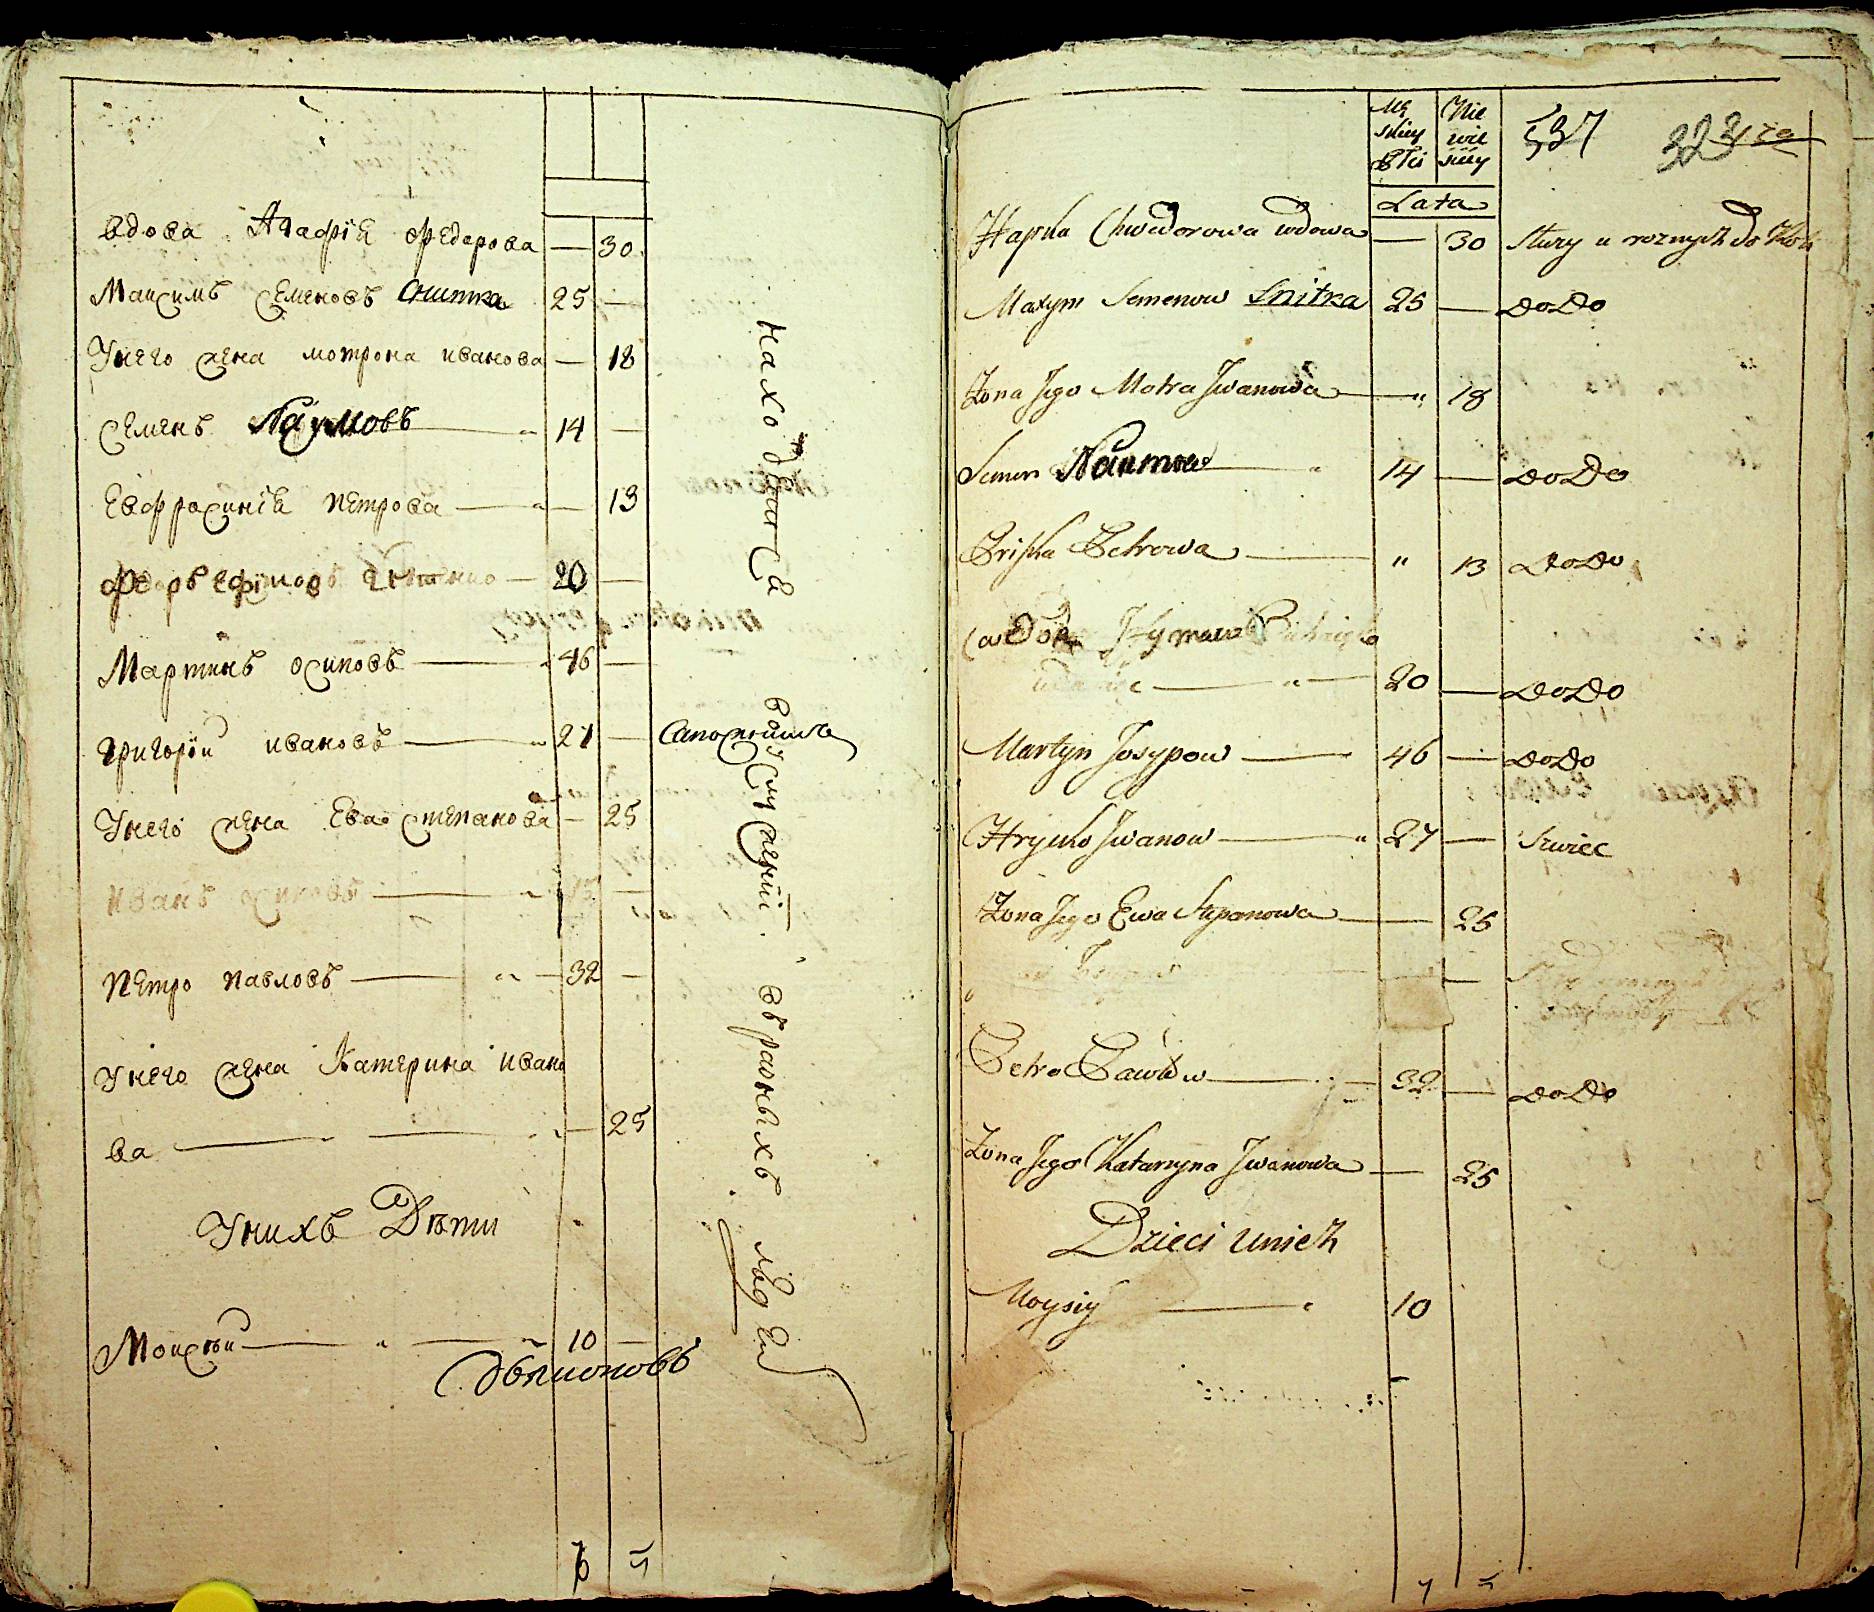 вдова Агафïя Федорова — 30
Максимъ Семеновъ Снитка 25 —
Унего жена мотрона иванова — 18
Семенъ Наумовъ 14 —
Евфросинïя Петрова — 13
Федоръ Ефимовъ 20 —
Мартинъ осиповъ 46 —
Григорïй ивановъ 27 — Сапожникъ
Унего жена Ева степанова — 25
иванъ осиповъ 15 —
Петро павловъ 32 —
Унего жена Катерина ивано
ва — 25
Унихъ Дѣти
Моисѣй 10 —
Дьяконовъ
7 5
находятся
вуслуженïи
въ разныхъ
людей
Mę skiey Płci
Nie wie sciey
537
323
Lata
Hapka Chwedorowa wdowa — 30 Służy u roznych do
Maxym Semenow Snitka 25 — DoDo
Żona Jego Motra Jwanowa " 18
Semen Naumow 14 — DoDo
Priska Petrowa " 13 DoDo
20 — DoDo
Martyn Josypow 46 — DoDo
Hrycko Jwanow 27 — Szwiec
Żona Jego Ewa Stepanowa — 25
Petro Pawłow 32 — DoDo
Żona Jego Katarzyna Jwanowa — 25
Dzieci unich
Moysiy 10
7 5